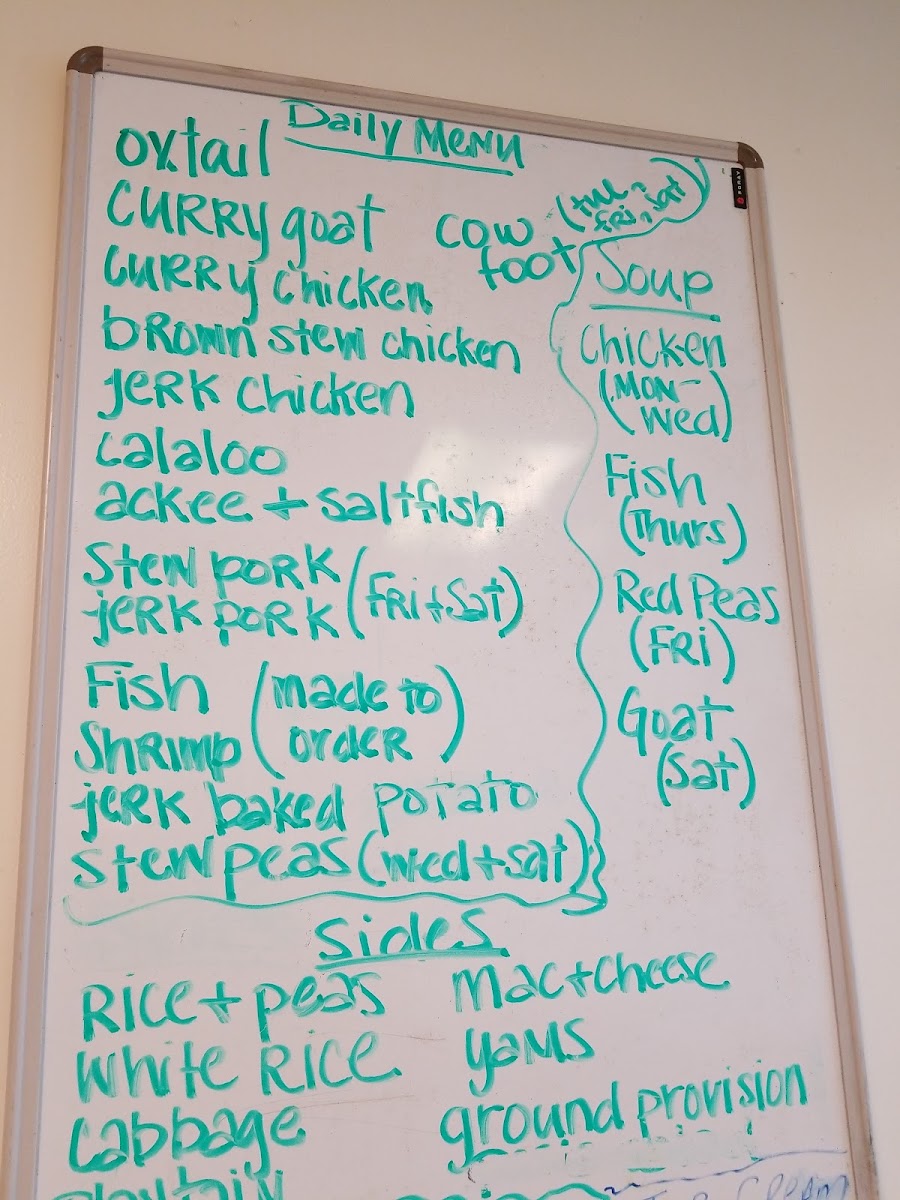 Daily Menu
oxtail
CURRY goat
CURRY chicken
bROWN stew chicken
jERK chicken
calaloo
ackee + saltfish
Stew pORK
jERK pORK
(FRi + Sat)
Fish
Shrimp
(made to
order)
jERK baked potato
stew peas (wed + sat)
cow
foot
(tue,
fri, sat)
Soup
Chicken
(Mon-
Wed)
Fish
(Thurs)
Red Peas
(FRi)
Goat
(Sat)
Sides
Rice + peas
White Rice
Cabbage
Plantain
Mac + cheese
yams
ground provision
FORAY